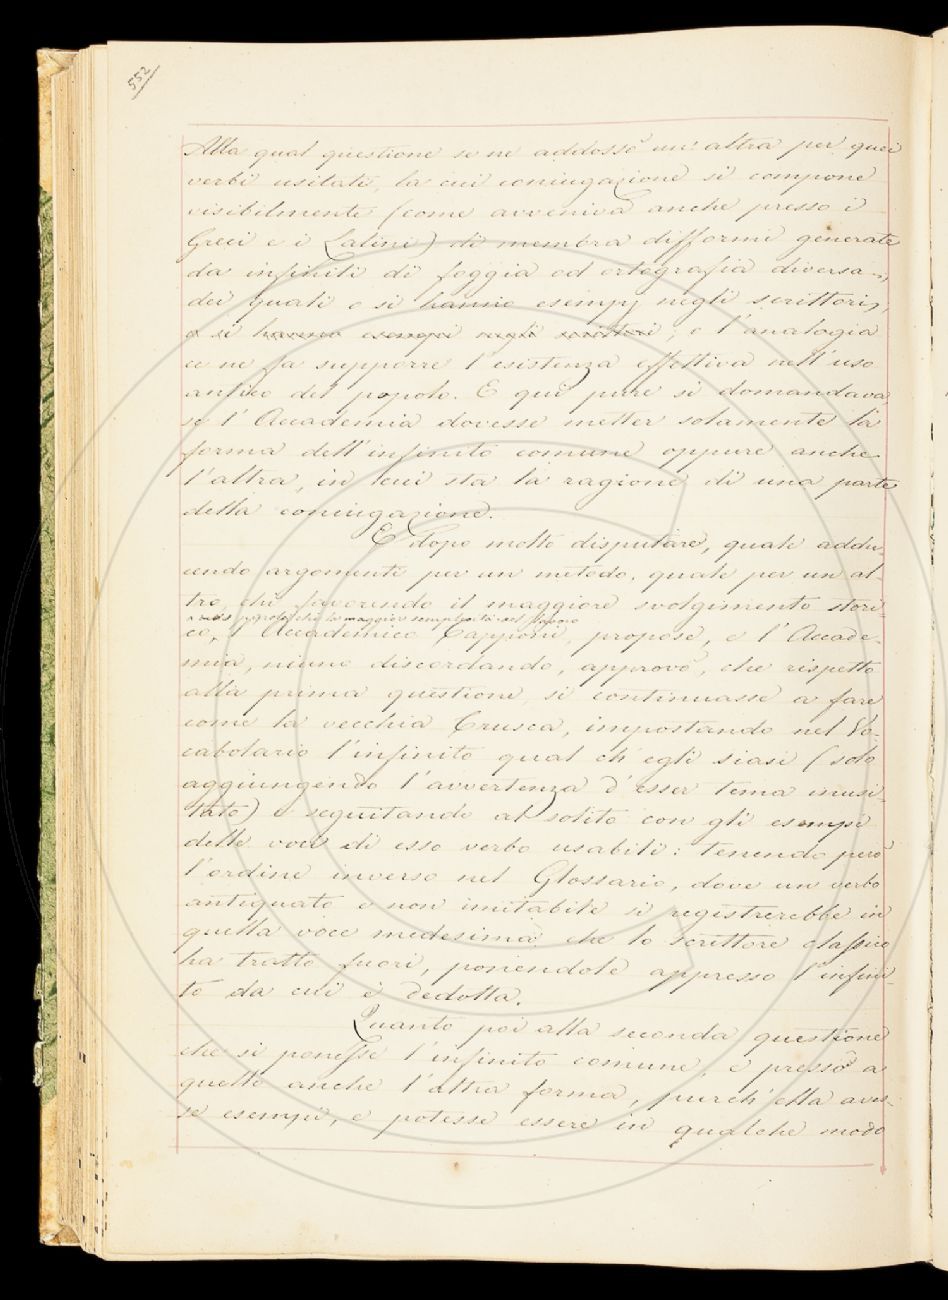 552
Alla qual questione se ne addossò un'altra per quei
verbi usitati, la cui coniugazione si compone
visibilmente (come avveniva anche presso i
Greci e i Latini) di membra difformi generate
da infiniti di foggia od ortografia diversa,
dei quali o si hanno esempj negli scrittori,
o si havenno esempi negli scrittori, o l'analogia
ce ne fa supporre l'esistenza effettiva nell'uso
antico del popolo. E qui pure si domandava
se l'Accademia dovesse metter solamente la
forma dell'infinito comune oppure anche
l'altra, in cui sta la ragione di una parte
della coniugazione.
E dopo molto disputare, quale addu-
cendo argomenti per un metodo, quale per un al-
tro, chi favorendo il maggiore svolgimento stori-
che la maggior semplicità
co, l'Accademico Capponi, propose, e l'Accade-
mia, niuno discordando, approvò, che rispetto
alla prima questione, si continuasse a fare
come la vecchia Crusca, impostando nel Vo-
cabolario l'infinito qual ch'egli siasi (solo
aggiungendo l'avvertenza d'esser tema inusi-
tato) e seguitando al solito con gli esempi
delle voci di esso verbo usabili: tenendo però
l'ordine inverso nel Glossario, dove un verbo
antiquato e non imitabile si registrerebbe in
quella voce medesima che lo scrittore classico
ha tratto fuori, ponendole appresso l'infini-
to da cui è dedotta.
Quanto poi alla seconda questione
che si ponesse l'infinito comune, e presso a
quello anche l'altra forma, purch'ella aves-
se esempi, e potesse essere in qualche modo